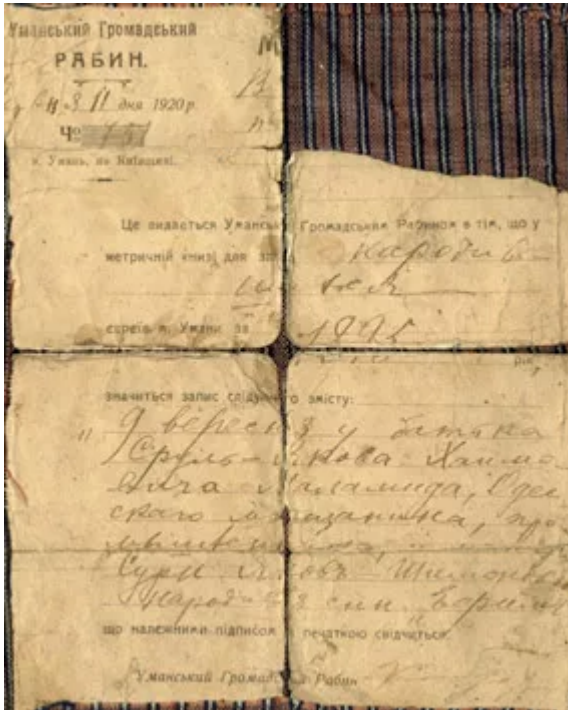 Уманський Громадський
РАБИН.
3 II дня 1920 р.
Чо 151
м. Умань, на Київщині.
Це видається Уманським Громадським Рабином в тім, що у
метричній книзі для за народив-
шихся
євреїв м. Умани за 1895
рік,
значиться запис слідуючого змісту:
" 9 вересня у батька
Сруль-Якова Хаимо-
вича Маламуда, Одес-
скаго мещанина, про
и
Сури Шимон
народився син Бориш
що належними підписом і печаткою свідчиться.
Уманський Громадський Рабин